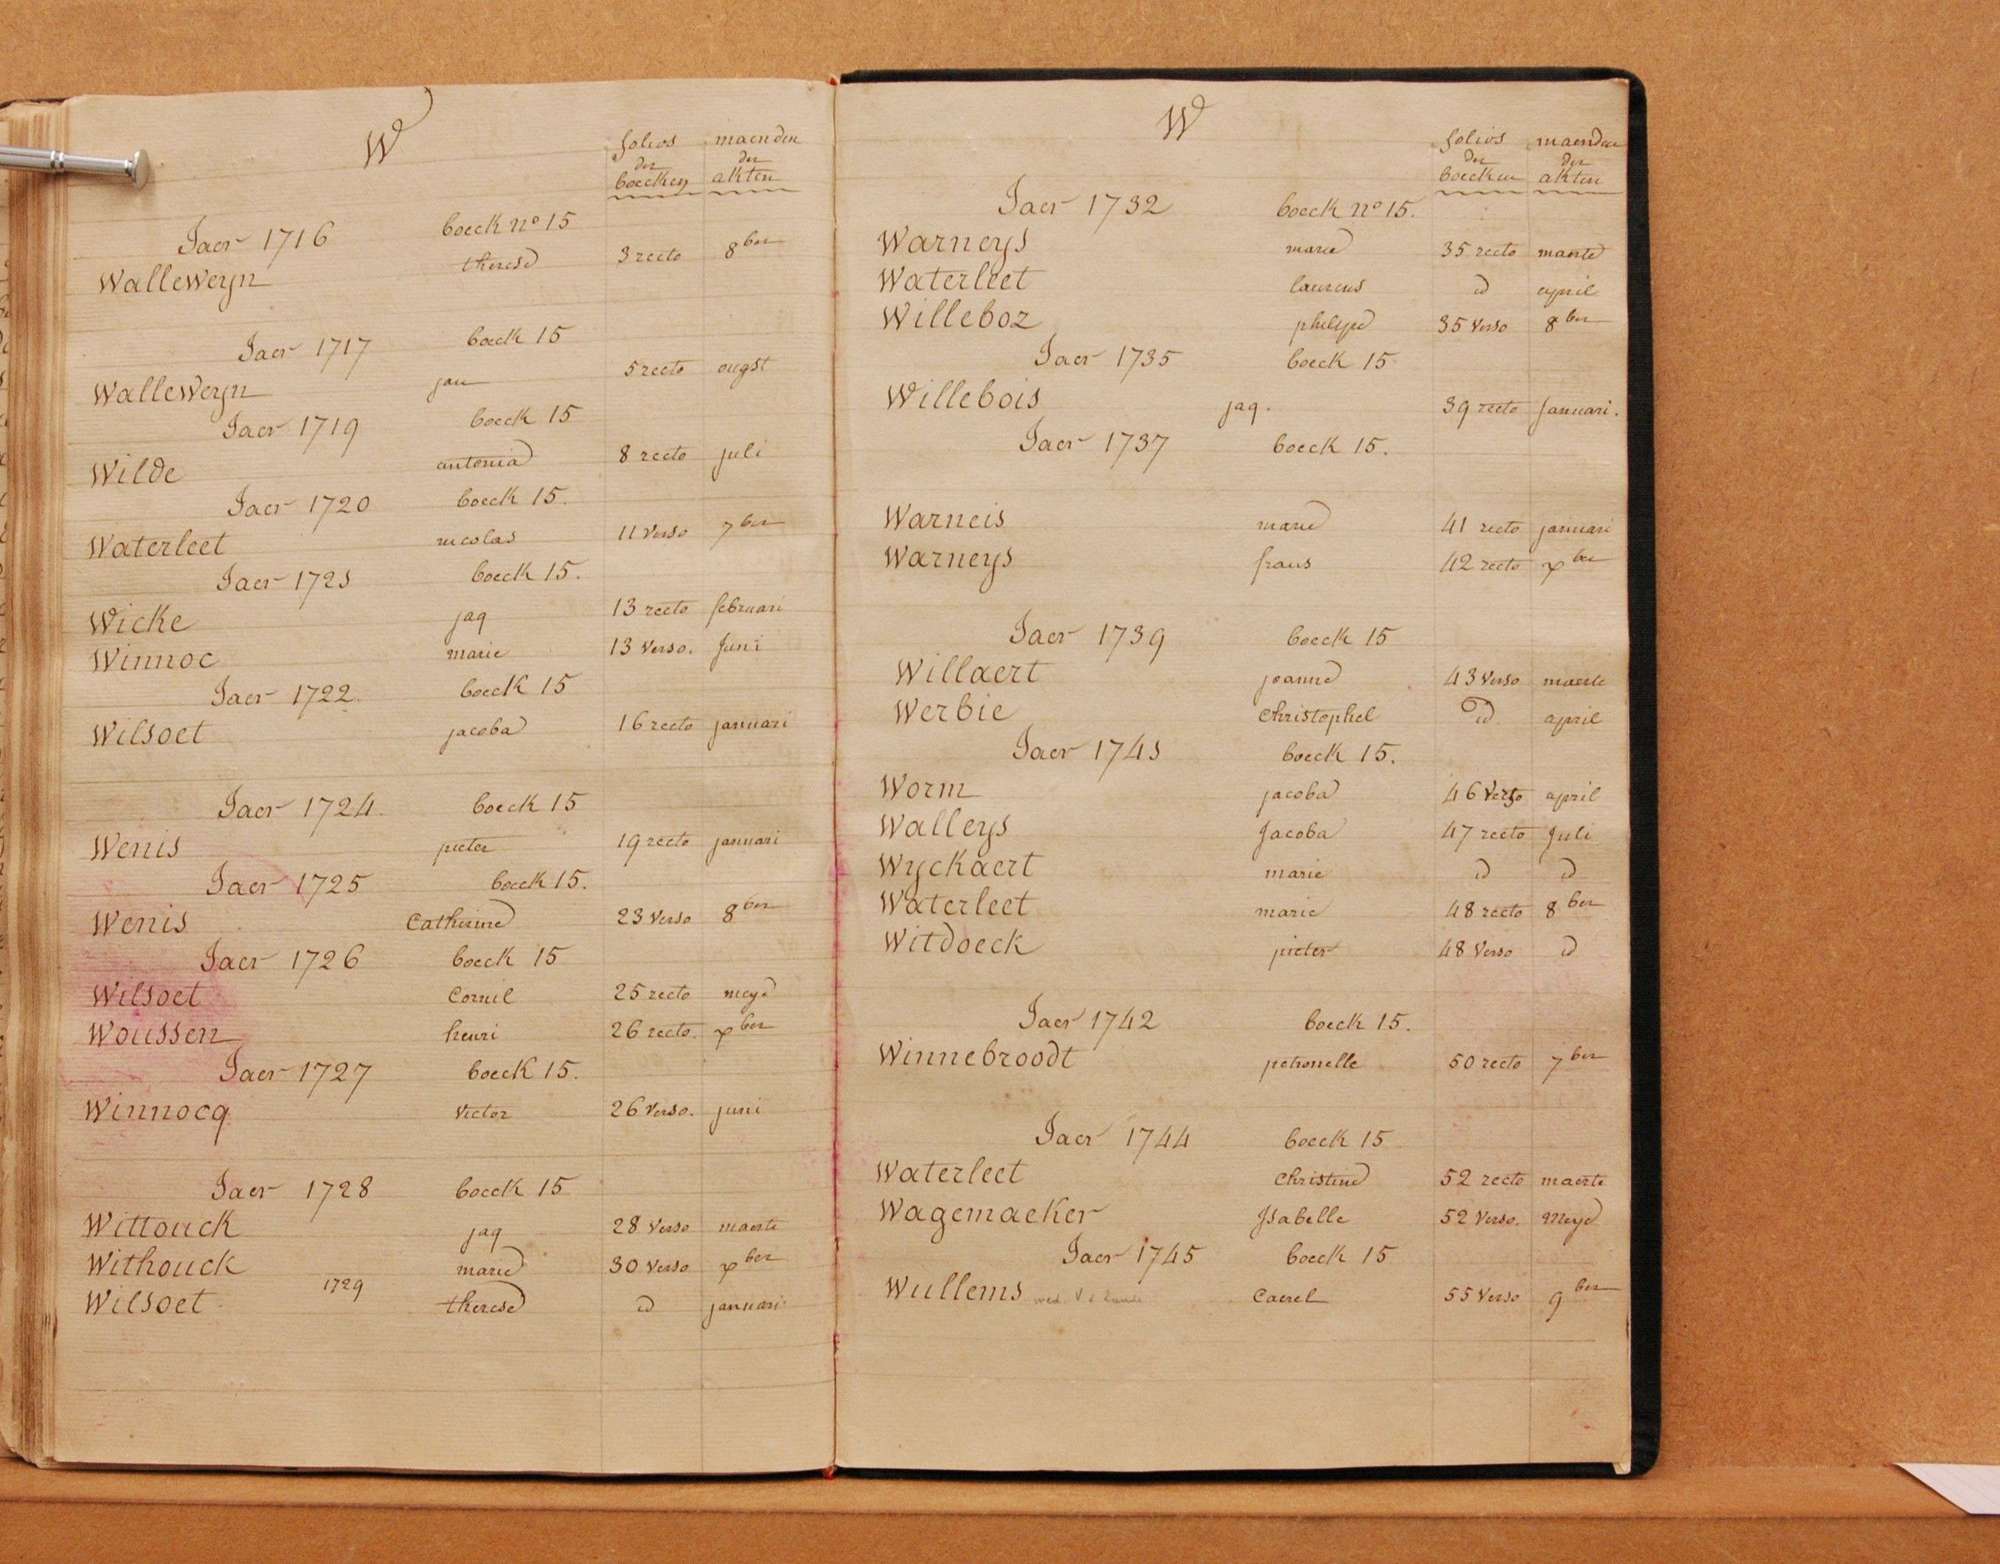 W
folios maenden
der der
boecken akten
Jaer 1716 boeck nº 15
Walleweyn therese 3 recto 8ber
Jaer 1717 boeck 15
Walleweyn jan 5 recto ougst
Jaer 1719 boeck 15
Wilde antonia 8 recto juli
Jaer 1720 boeck 15.
Waterleet nicolas 11 verso 7ber
Jaer 1721 boeck 15.
Wicke jaq 13 recto februari
Winnoc marie 13 verso. Juni
Jaer 1722. boeck 15
Wilsoet jacoba 16 recto januari
Jaer 1724. boeck 15
Wenis pieter 19 recto januari
Jaer 1725 boeck 15.
Wenis Catherine 23 verso 8ber
Jaer 1726 boeck 15
Wilsoet Cornil 25 recto meye
Woussen henri 26 recto. xber
Jaer 1727 boeck 15.
Winnocq victor 26 verso. juni
Jaer 1728 boeck 15
Wittouck jaq 28 verso maerte
Withouck marie 30 verso xber
Wilsoet 1729 therese id januari
W
folios maenden
der der
boecken akten
Jaer 1732 boeck nº 15.
Warneys marie 35 recto maerte
Waterleet laurens id april
Willeboz philipe 35 verso 8ber
Jaer 1735 boeck 15
Willebois jaq. 39 recto Januari.
Jaer 1737 boeck 15.
Warneis marie 41 recto januari
Warneys frans 42 recto xber
Jaer 1739 boeck 15
Willaert joanne 43 verso maerte
Werbie Christophel id. april
Jaer 1741 boeck 15.
Worm jacoba 46 verso april
Walleys Jacoba 47 recto Juli
Wyckaert marie id id
Waterleet marie 48 recto 8ber
Witdoeck pieter 48 verso id
Jaer 1742 boeck 15.
Winnebroodt petronelle 50 recto 7ber
Jaer 1744 boeck 15
Waterleet Christine 52 recto maerte
Wagemaeker Isabelle 52 verso. meye
Jaer 1745 boeck 15
Wullems Caerel 55 verso 9ber